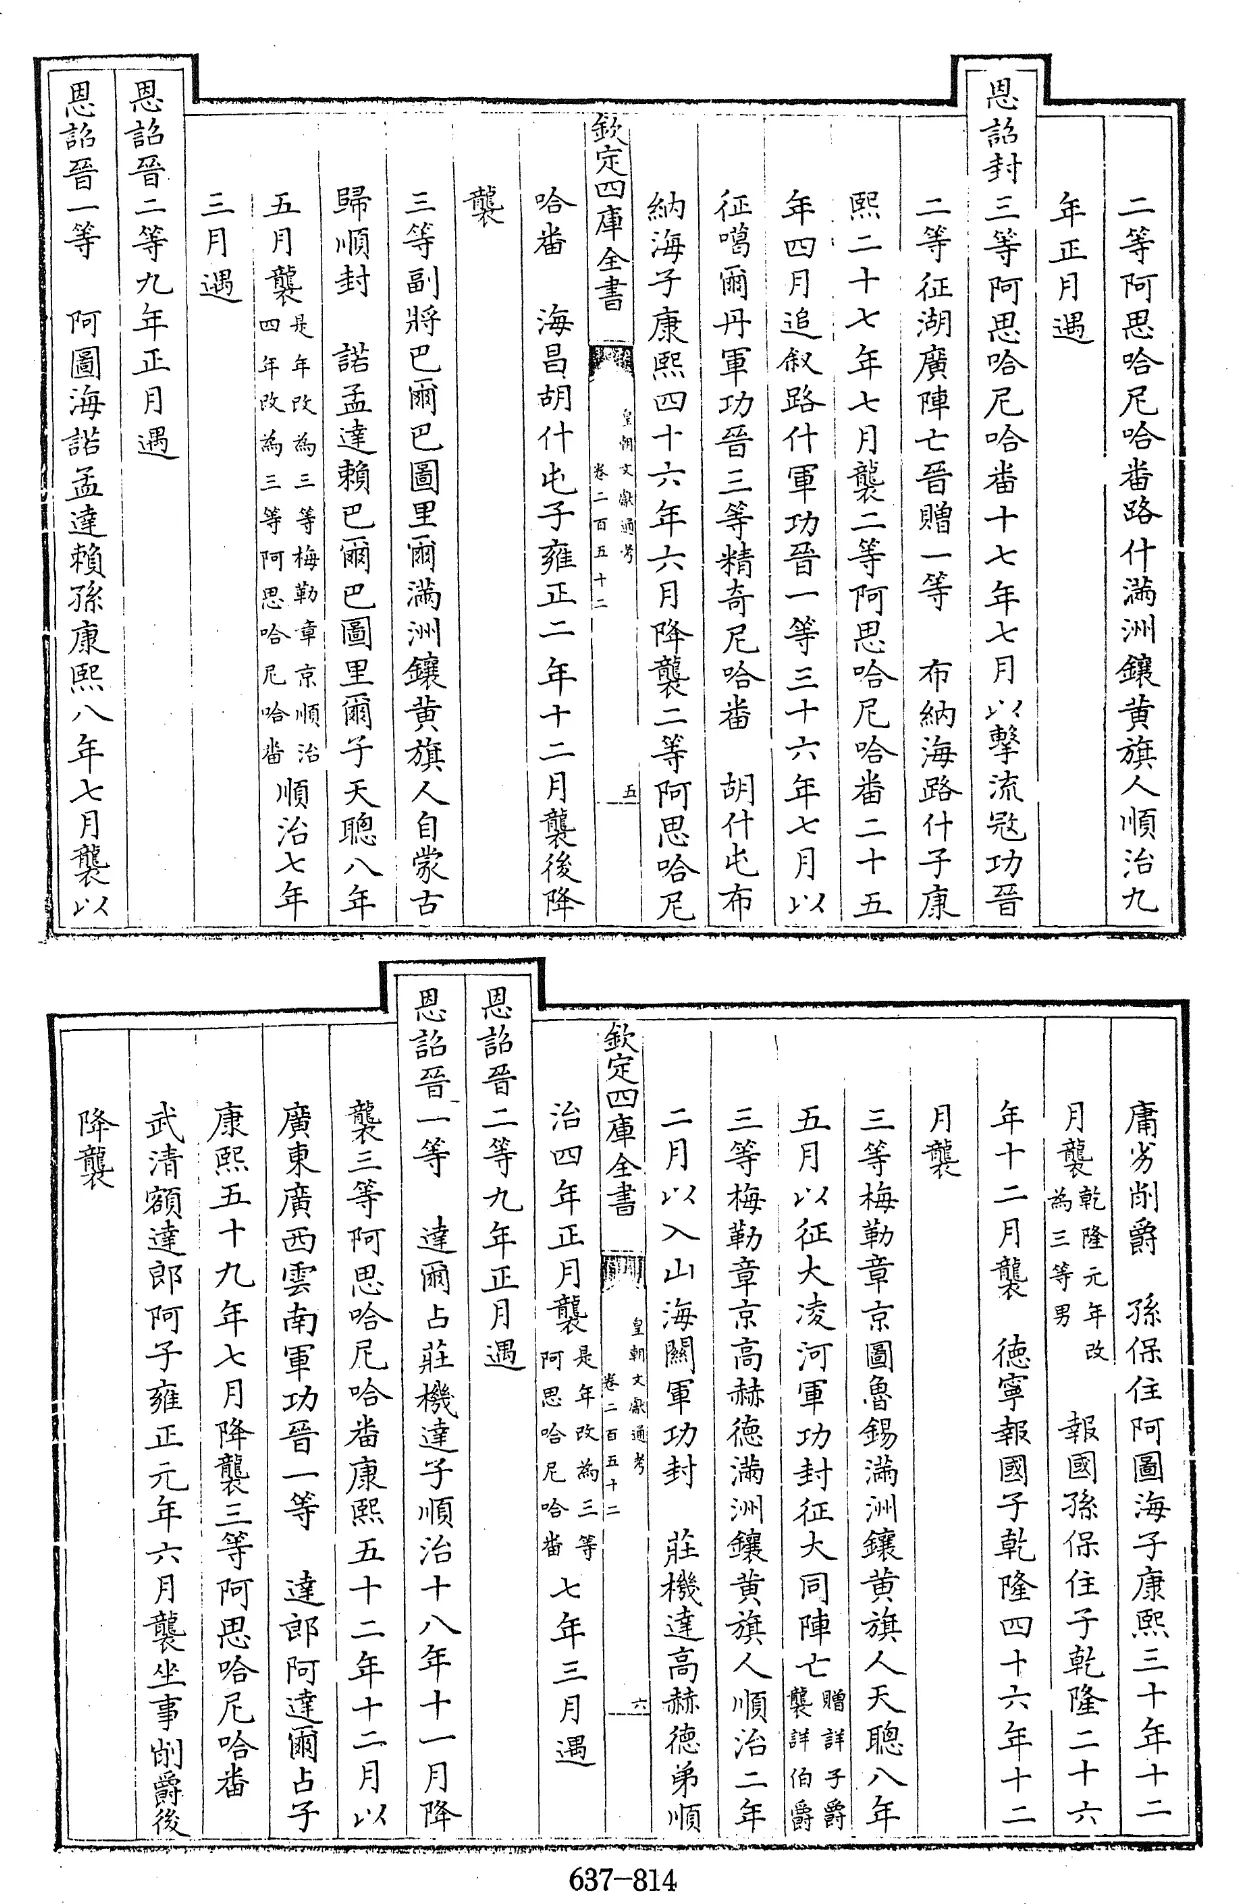 二等阿思哈尼哈番路什滿洲鑲黃旗人順治九
年正月遇
恩詔封三等阿思哈尼哈番十七年七月以擊流寇功晉
二等征湖廣陣亡晉贈一等　布納海路什子康
熙二十七年七月襲二等阿思哈尼哈番二十五
年四月追敘路什軍功晉一等三十六年七月以
征噶爾丹軍功晉三等精奇尼哈番　胡什屯布
納海子康熙四十六年六月降襲二等阿思哈尼
欽定四庫全書　皇朝文獻通考　卷二百五十二　五
哈番　海昌胡什屯子雍正二年十二月襲後降
襲
三等副將巴爾巴圖里爾滿洲鑲黃旗人自蒙古
歸順封　諾孟達賴巴爾巴圖里爾子天聰八年
五月襲是年改為三等梅勒章京順治四年改為三等阿思哈尼哈番順治七年
三月遇
恩詔晉二等九年正月遇
恩詔晉一等　阿圖海諾孟達賴孫康熙八年七月襲以
庸劣削爵　孫保住阿圖海子康熙三十年十二
月襲乾隆元年改為三等男　報國孫保住子乾隆二十六
年十二月襲　德寧報國子乾隆四十六年十二
月襲
三等梅勒章京圖魯錫滿洲鑲黃旗人天聰八年
五月以征大凌河軍功封征大同陣亡贈詳子爵襲詳伯爵
三等梅勒章京高赫德滿洲鑲黃旗人順治二年
二月以入山海關軍功封　莊機達高赫德弟順
欽定四庫全書　皇朝文獻通考　卷二百五十二　六
治四年正月襲是年改為三等阿思哈尼哈番七年三月遇
恩詔晉二等九年正月遇
恩詔晉一等　達爾占莊機達子順治十八年十一月降
襲三等阿思哈尼哈番康熙五十二年十二月以
廣東廣西雲南軍功晉一等　達郎阿達爾占子
康熙五十九年七月降襲三等阿思哈尼哈番
武清額達郎阿子雍正元年六月襲坐事削爵後
降襲
637-814